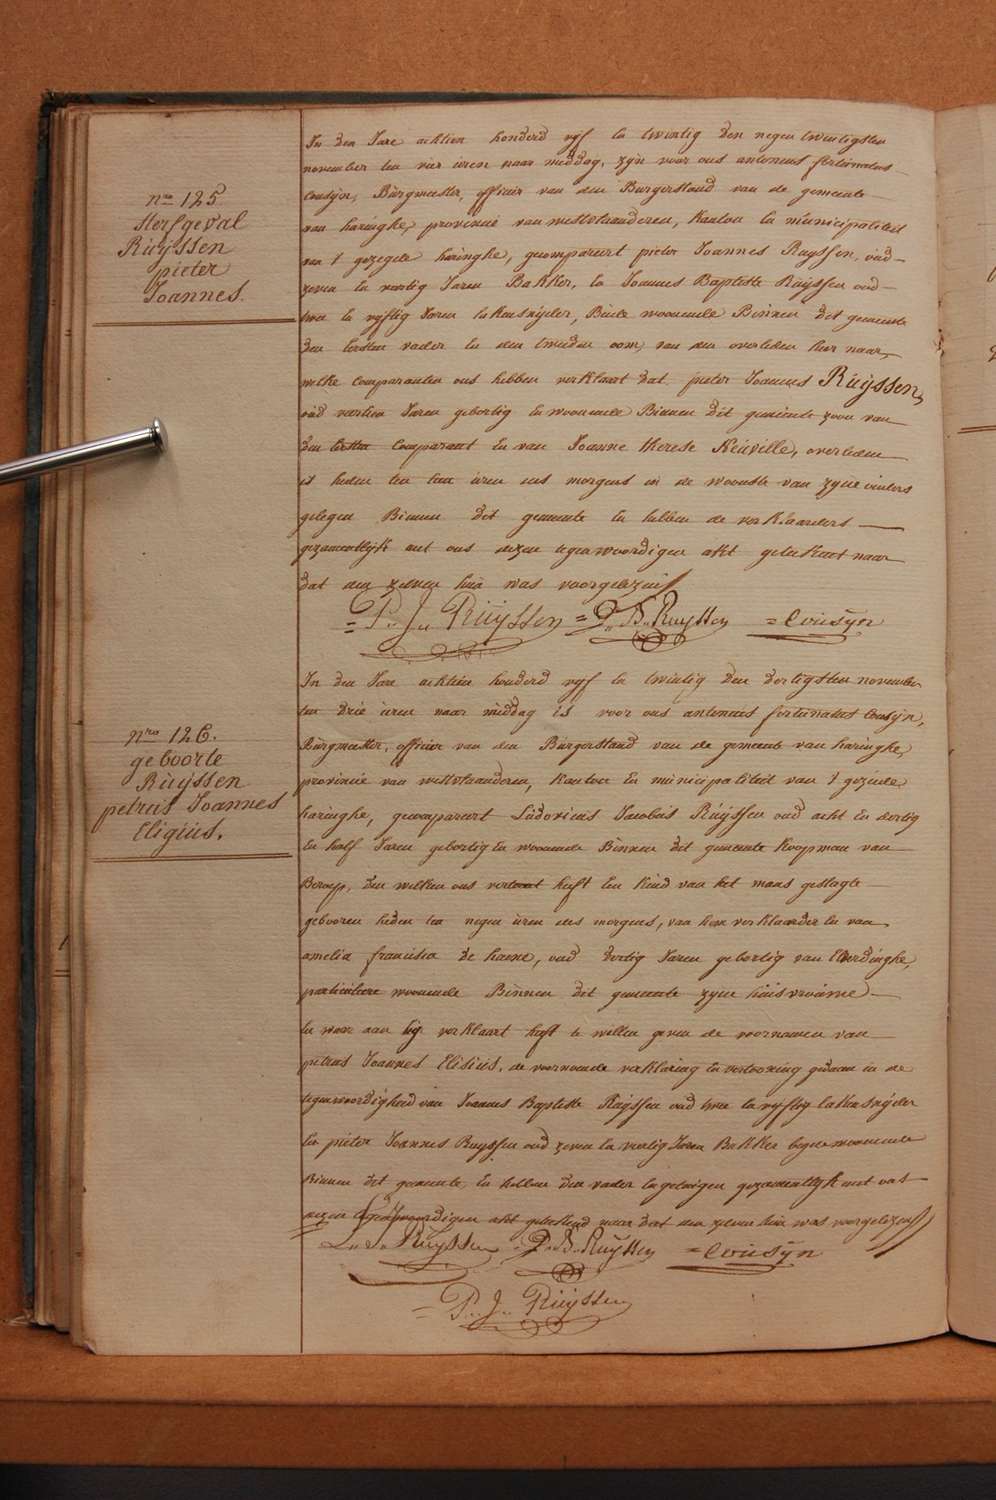 nro 125
Sterfgeval
Ruÿssen
pieter
Joannes.
In den Jare achtien honderd vyf en twintig den negen twintigsten
november ten vier uren naar middag, zyn voor ons antonius fortunatus
Cousÿn, Burgmeester, officier van den Burgerstand van de gemeente
van haringhe, provincie van westvlaanderen, kanton en municipaliteit
van 't gezegde haringhe, gecompareert pieter Joannes Ruÿssen, oud
zeven en veertig Jaren Bakker, en Joannes Baptiste Ruÿssen oud
twee en vyftig Jaren lakensnÿder, Beide woonende Binnen dit gemeente
den eersten vader en den tweeden oom van den overleden hier naar,
welke comparanten ons hebben verklaart dat pieter Joannes Ruÿssen,
oud veertien Jaren gebortig en woonende Binnen dit gemeente zoon van
den eersten comparant en van Joanne therese Neuville, overleden
is heden ten tien uren des morgens in de woonste van zyne ouders
gelegen Binnen dit gemeente en hebben de verklaarders
gezamentlÿk met ons dezen tegenwoordigen akt geteekent naar
dat den zelven hun was voorgelezen
= P. J. Ruÿssen = J. B. Ruÿssen = Cousÿn
nro 126.
geboorte
Ruÿssen
petrus Joannes
Eligius.
In den Jare achtien honderd vyf en twintig den dertigsten november
ten drie uren naar middag is voor ons antonius fortunatus Cousÿn,
Burgmeester, officier van den Burgerstand van de gemeente van haringhe,
provincie van westvlaanderen, kanton en municipaliteit van 't gezeide
haringhe, gecompareert Ludovicus Jacobus Ruÿssen oud acht en dertig
en half Jaren gebortig en woonende Binnen dit gemeente koopman van
Beroep, den welken ons vertoont heeft een kind van het mans geslagte
gebooren heden ten negen uren des morgens, van hem verklaarder en van
amelia francisca De haene, oud dertig Jaren gebortig van Elverdinghe,
particuliere woonende Binnen dit gemeente zyne huisvrouwe
en waar aan hy verklaart heeft te willen geven de voornamen van
petrus Joannes Eligius, de voornoemde verklaring en vertooning gedaan in de
tegenwoordigheid van Joannes Baptiste Ruÿssen oud twee en vyftig lakensnÿder
en pieter Joannes Ruyssen oud zeven en veertig Jaren Bakker woonende
Binnen dit gemeente, en hebben den vader en getuigen gezamentlÿk met ons
dezen tegenwoordigen akt geteekend naar dat den zelven hun was voorgelezen
L. J. Ruÿssen = J. B. Ruÿssen = Cousÿn
= P. J. Ruÿssen